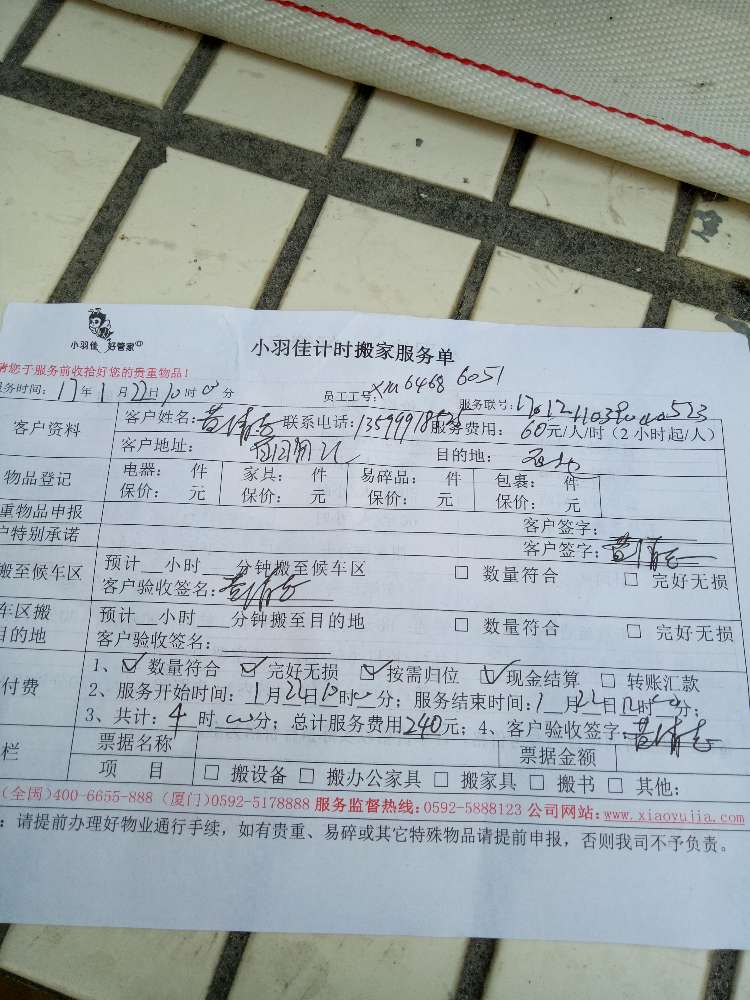 小羽佳 好管家
小羽佳计时搬家服务单
请您于服务前收拾好您的贵重物品!
务时间: 17年1月22日10时00分 员工工号: XM6468 6051 服务联号:
客户资料 客户姓名: 黄清志 联系电话: 服务费用: 60元/人/时(2小时起/人)
客户地址: 目的地:
物品登记 电器: 件 家具: 件 易碎品: 件 包裹: 件
保价: 元 保价: 元 保价: 元 保价: 元
重物品申报 客户签字:
户特别承诺 客户签字: 黄清志
搬至候车区 预计__小时__分钟搬至候车区 □ 数量符合 □ 完好无损
客户验收签名: 黄清志
车区搬 预计__小时__分钟搬至目的地 □ 数量符合 □ 完好无损
目的地 客户验收签名:
付费 1、☑数量符合 ☑完好无损 ☑按需归位 ☑现金结算 □ 转账汇款
2、服务开始时间: 1月22日10时00分; 服务结束时间: 1月22日12时00分;
3、共计: 4时00分; 总计服务费用240元; 4、客户验收签字: 黄清志
栏 票据名称 票据金额
项 目 □ 搬设备 □ 搬办公家具 □ 搬家具 □ 搬书 □ 其他:
(全国)400-6655-888 (厦门)0592-5178888 服务监督热线:0592-5888123 公司网站:www.xiaoyujia.com
: 请提前办理好物业通行手续,如有贵重、易碎或其它特殊物品请提前申报,否则我司不予负责。